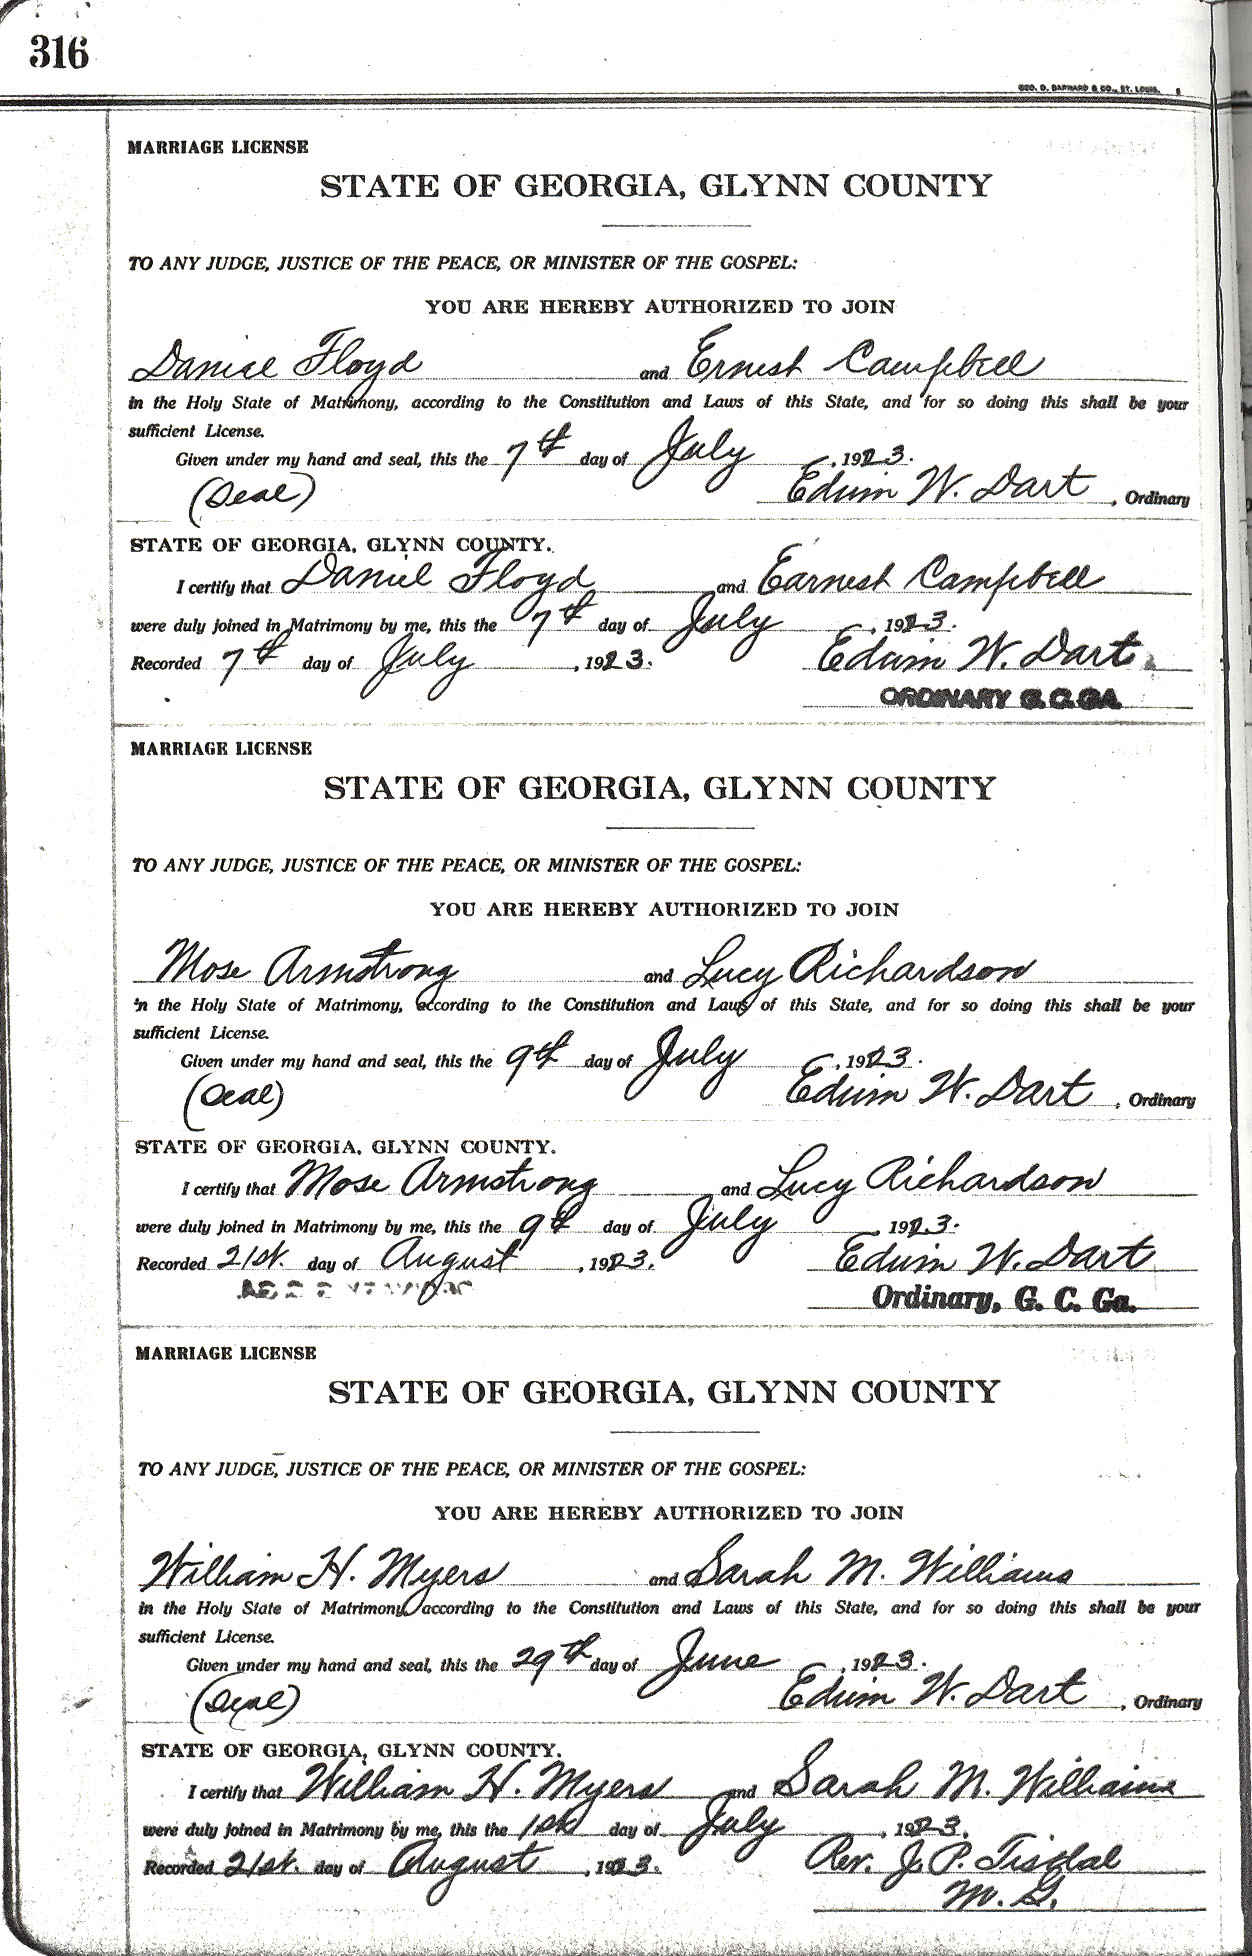 316
GEO. D. BARNARD & CO., ST. LOUIS.
MARRIAGE LICENSE
STATE OF GEORGIA, GLYNN COUNTY
TO ANY JUDGE, JUSTICE OF THE PEACE, OR MINISTER OF THE GOSPEL:
YOU ARE HEREBY AUTHORIZED TO JOIN
Daniel Floyd and Ernest Campbell
in the Holy State of Matrimony, according to the Constitution and Laws of this State, and for so doing this shall be your
sufficient License.
Given under my hand and seal, this the 7th day of July, 1923.
(Seal) Edwin W. Dart, Ordinary
STATE OF GEORGIA, GLYNN COUNTY.
I certify that Daniel Floyd and Earnest Campbell
were duly joined in Matrimony by me, this the 7th day of July, 1923.
Recorded 7th day of July, 1923. Edwin W. Dart
ORDINARY G. C. GA.
MARRIAGE LICENSE
STATE OF GEORGIA, GLYNN COUNTY
TO ANY JUDGE, JUSTICE OF THE PEACE, OR MINISTER OF THE GOSPEL:
YOU ARE HEREBY AUTHORIZED TO JOIN
Mose Armstrong and Lucy Richardson
in the Holy State of Matrimony, according to the Constitution and Laws of this State, and for so doing this shall be your
sufficient License.
Given under my hand and seal, this the 9th day of July, 1923.
(Seal) Edwin W. Dart, Ordinary
STATE OF GEORGIA, GLYNN COUNTY.
I certify that Mose Armstrong and Lucy Richardson
were duly joined in Matrimony by me, this the 9th day of July, 1923.
Recorded 21st. day of August, 1923. Edwin W. Dart
Ordinary, G. C. Ga.
MARRIAGE LICENSE
STATE OF GEORGIA, GLYNN COUNTY
TO ANY JUDGE, JUSTICE OF THE PEACE, OR MINISTER OF THE GOSPEL:
YOU ARE HEREBY AUTHORIZED TO JOIN
William H. Myers and Sarah M. Williams
in the Holy State of Matrimony, according to the Constitution and Laws of this State, and for so doing this shall be your
sufficient License.
Given under my hand and seal, this the 29th day of June, 1923.
(Seal) Edwin W. Dart, Ordinary
STATE OF GEORGIA, GLYNN COUNTY.
I certify that William H. Myers and Sarah M. Williams
were duly joined in Matrimony by me, this the 1st day of July, 1923.
Recorded 21st. day of August, 1923. Rev. J. P. Tisdal
M. G.